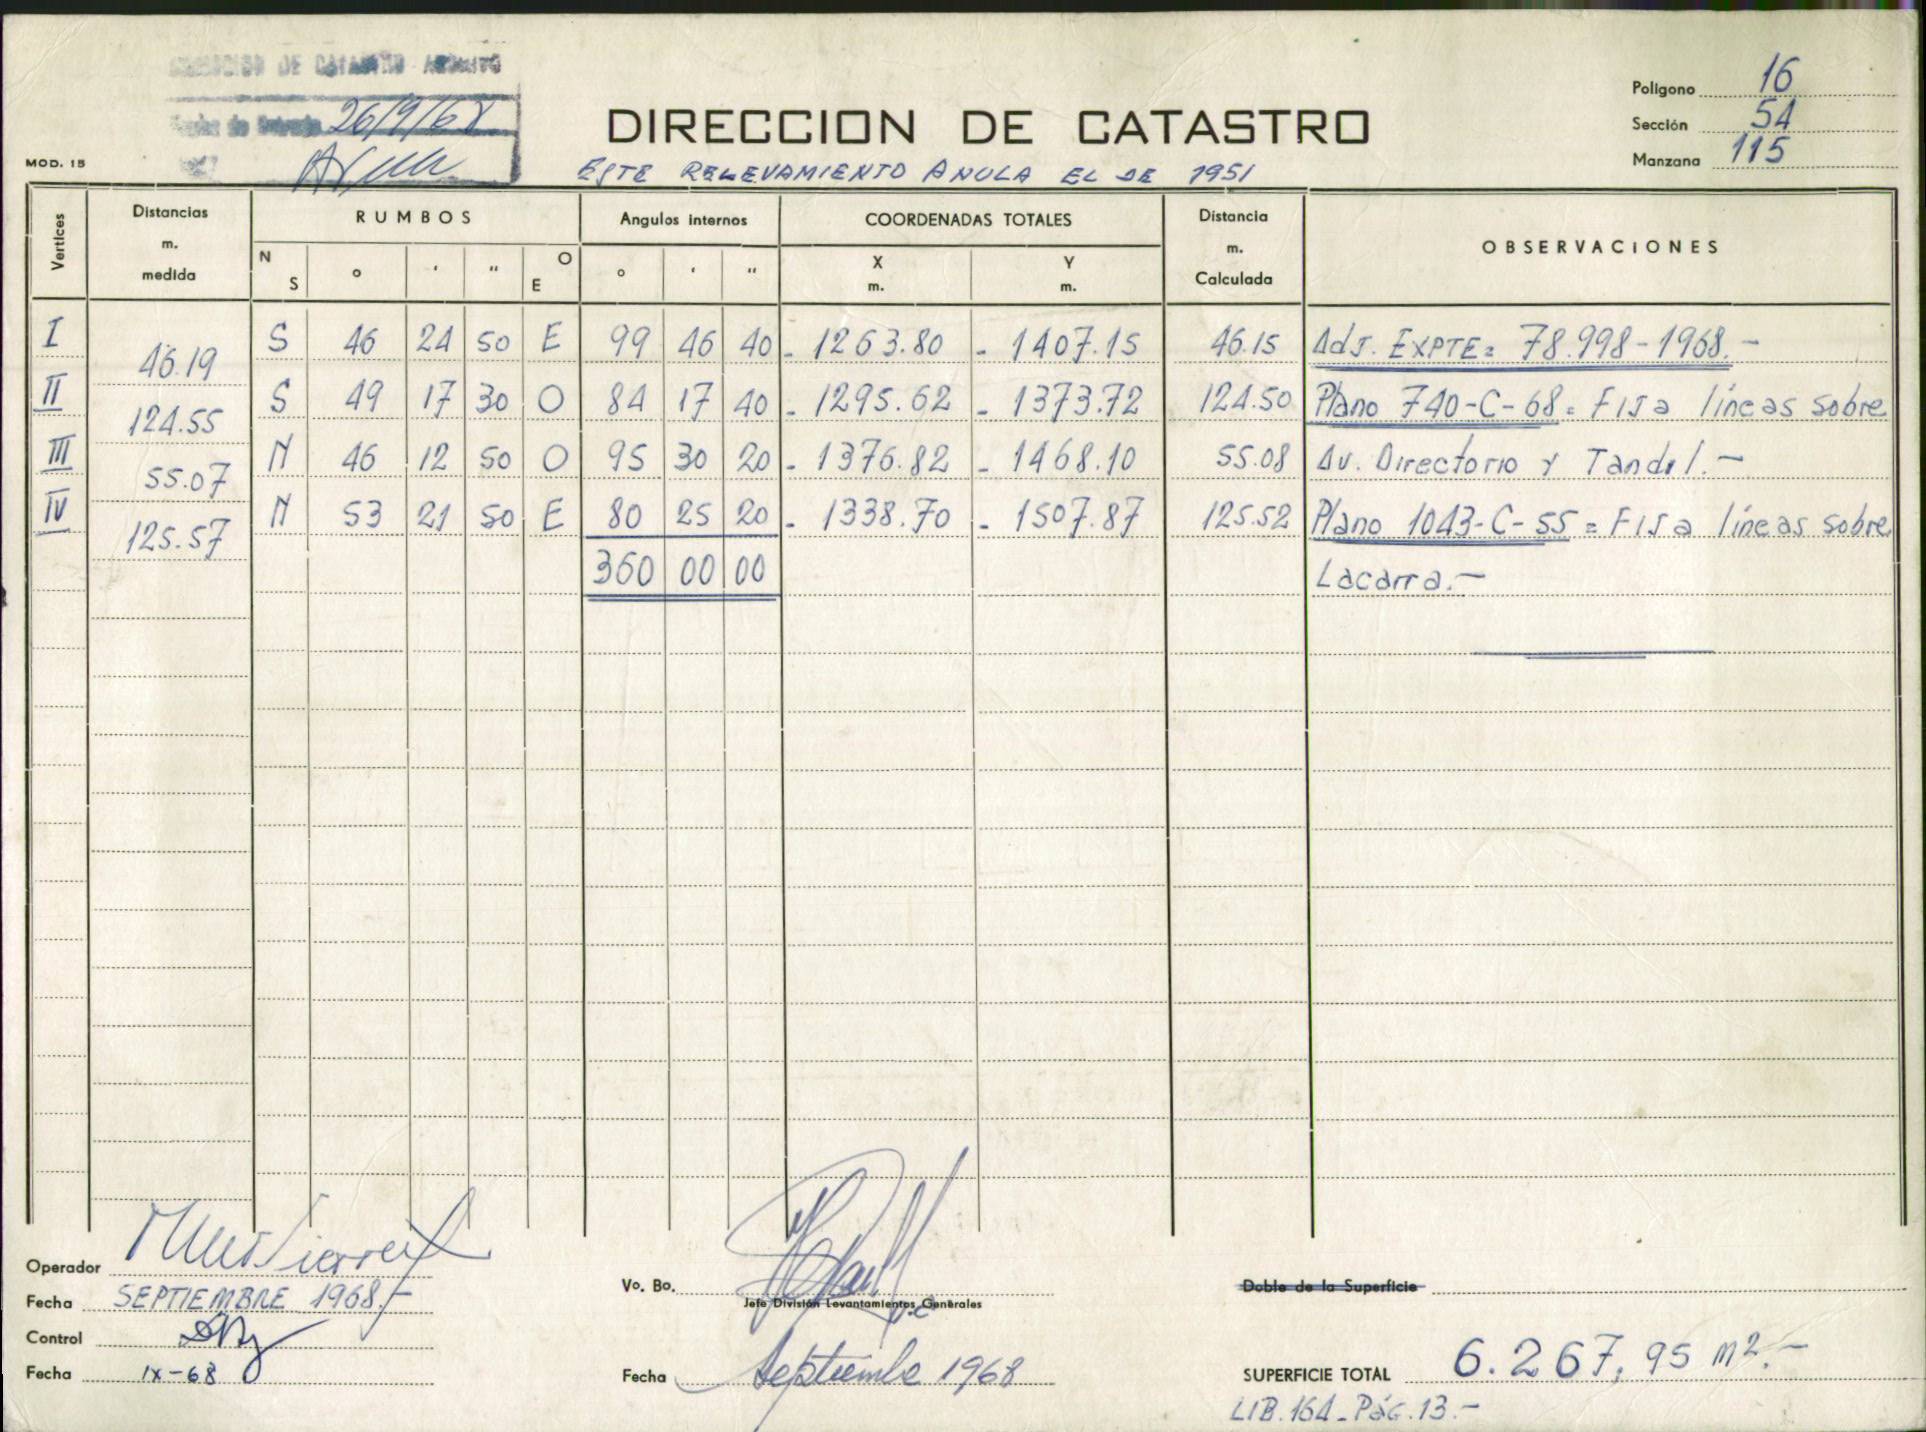 DIRECCION DE CATASTRO
26/9/68
Poligono 16
Sección 54
Manzana 115
DIRECCION DE CATASTRO
MOD. 15
ESTE RELEVAMIENTO ANULA EL DE 1951
Vertices Distancias m. medida RUMBOS Angulos internos COORDENADAS TOTALES Distancia m. Calculada OBSERVACIONES
N S ° ' " O E ° ' " X m. Y m.
I 46.19 S 46 24 50 E 99 46 40 - 1263.80 - 1407.15 46.15 Adj. EXPTE= 78.998-1968.-
II 124.55 S 49 17 30 O 84 17 40 - 1295.62 - 1373.72 124.50 Plano 740-C-68= FIJa líneas sobre
III 55.07 N 46 12 50 O 95 30 20 - 1376.82 - 1468.10 55.08 Av. Directorio y Tandil.-
IV 125.57 N 53 21 50 E 80 25 20 - 1338.70 - 1507.87 125.52 Plano 1043-C-55= FIJa líneas sobre
360 00 00 Lacarra.-
Operador
Fecha SEPTIEMBRE 1968.-
Control
Fecha IX-68
Vo. Bo.
Jefe División Levantamientos Generales
Fecha Septiembre 1968
Doble de la Superficie
SUPERFICIE TOTAL 6.267,95 m2.-
LIB.164-PÁG.13.-